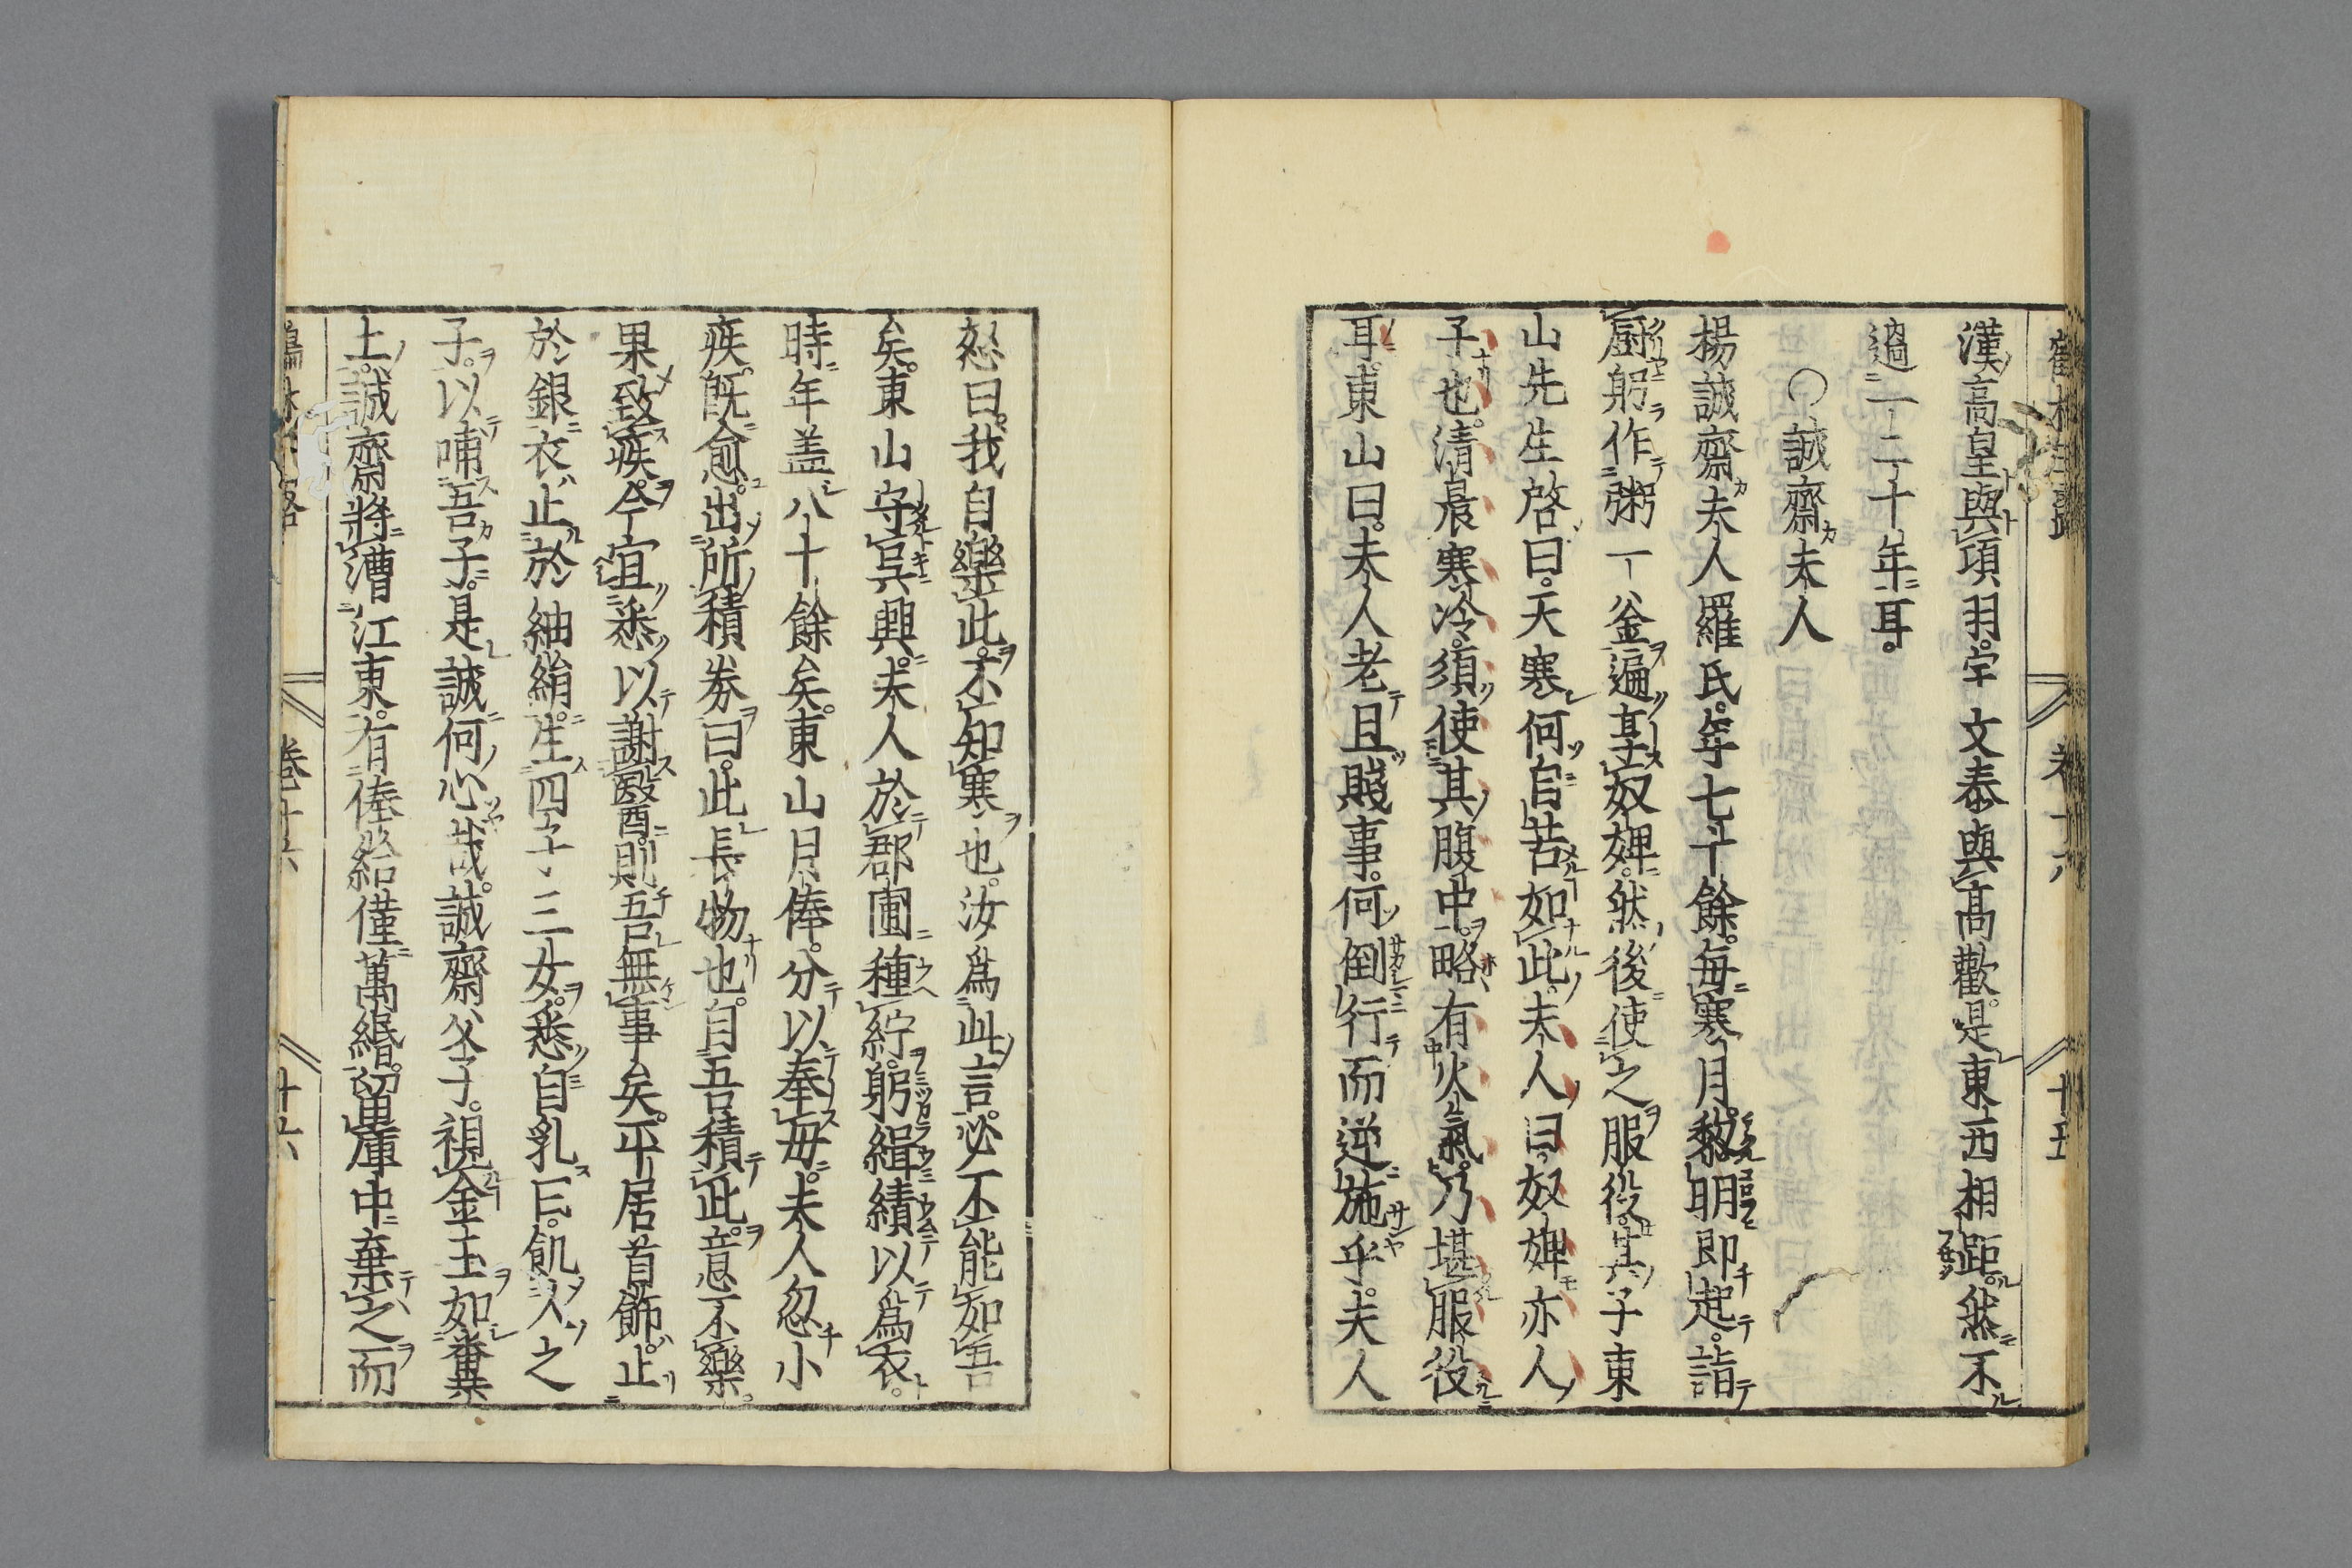 漢高皇與項羽。宇文泰與高歡。是東西相距。然不
過一二十年耳。
○誠齋夫人
楊誠齋夫人羅氏。年七十餘。每寒月。黎明即起。詣
厨躬作粥一釜。遍享奴婢。然後使之服役。其子東
山先生啓曰。天寒何自苦如此。夫人曰。奴婢亦人
子也。清晨寒冷。須使其腹中。略有火氣。乃堪服役
耳。東山曰。夫人老。且賤事。何倒行而逆施乎。夫人
怒曰。我自樂此。不知寒也。汝爲此言。必不能如吾
矣。東山守呉興。夫人於郡圃種紵。躬緝績以爲衣。
時年盖八十餘矣。東山月俸。分以奉毋。夫人忽小
疾。既愈。出所積券曰。此長物也。自吾積此。意不樂。
果致疾。今宜悉以謝醫。則吾無事矣。平居首飾。止
於銀。衣止於紬絹。生四子三女。悉自乳曰。飢人之
子。以哺吾子。是誠何心哉。誠齋父子。視金玉如糞
土。誠齋將漕江東。有俸給僅萬緡。留庫中棄之而
卷十六
十五
卷十六
十六